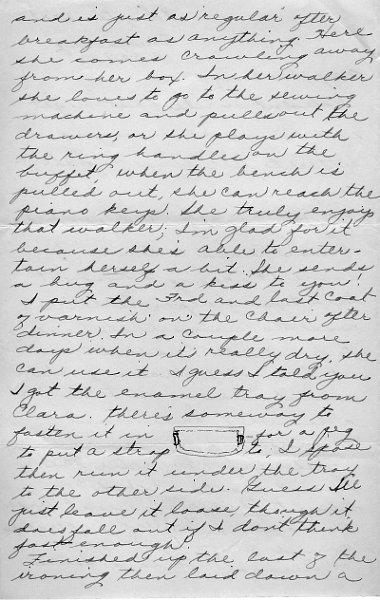 and is just as regular after
breakfast as anything. Here
she comes crawling away
from her box. In her walker
she loves to go to the sewing
machine and pulls out the
drawers, or she plays with
the ring handles on the
buffet, when the bench is
pulled out, she can reach the
piano keys. She truly enjoys
that walker; I'm glad for it
because she's able to enter-
tain herself a bit. She sends
a hug and a kiss to you!
I put the 3rd and last coat
of varnish on the chair after
dinner. In a couple more
days when it's really dry, she
can use it. I guess I told you
I got the enamel tray from
Clara. there's someway to
fasten it in for a peg
to put a strap to, I spose
then run it under the tray
to the other side. Guess I'll
just leave it loose, though it
does fall out if I don't think
fast enough.
Finished up the last of the
ironing then laid down a